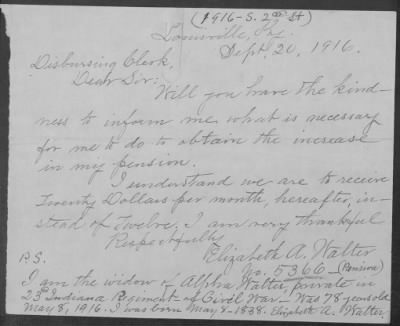 (1916-S. 2nd St)
Louisville, Ky.
Sept. 20, 1916.
Disbursing Clerk,
Dear Sir:
Will you have the kind-
ness to inform me what is necessary
for me to do to obtain the increase
in my pension.
I understand we are to receive
Twenty Dollars per month, hereafter, in-
stead of Twelve. I am very thankful
Respectfully
Elizabeth A. Walter
No. 5366 - (Pension)
P.S.
I am the widow of Alpha Walter, private in
23d Indiana Regiment of Civil War - Was 78 years old
May 8, 1916. I was born May 8-1838. Elizabeth A. Walter.